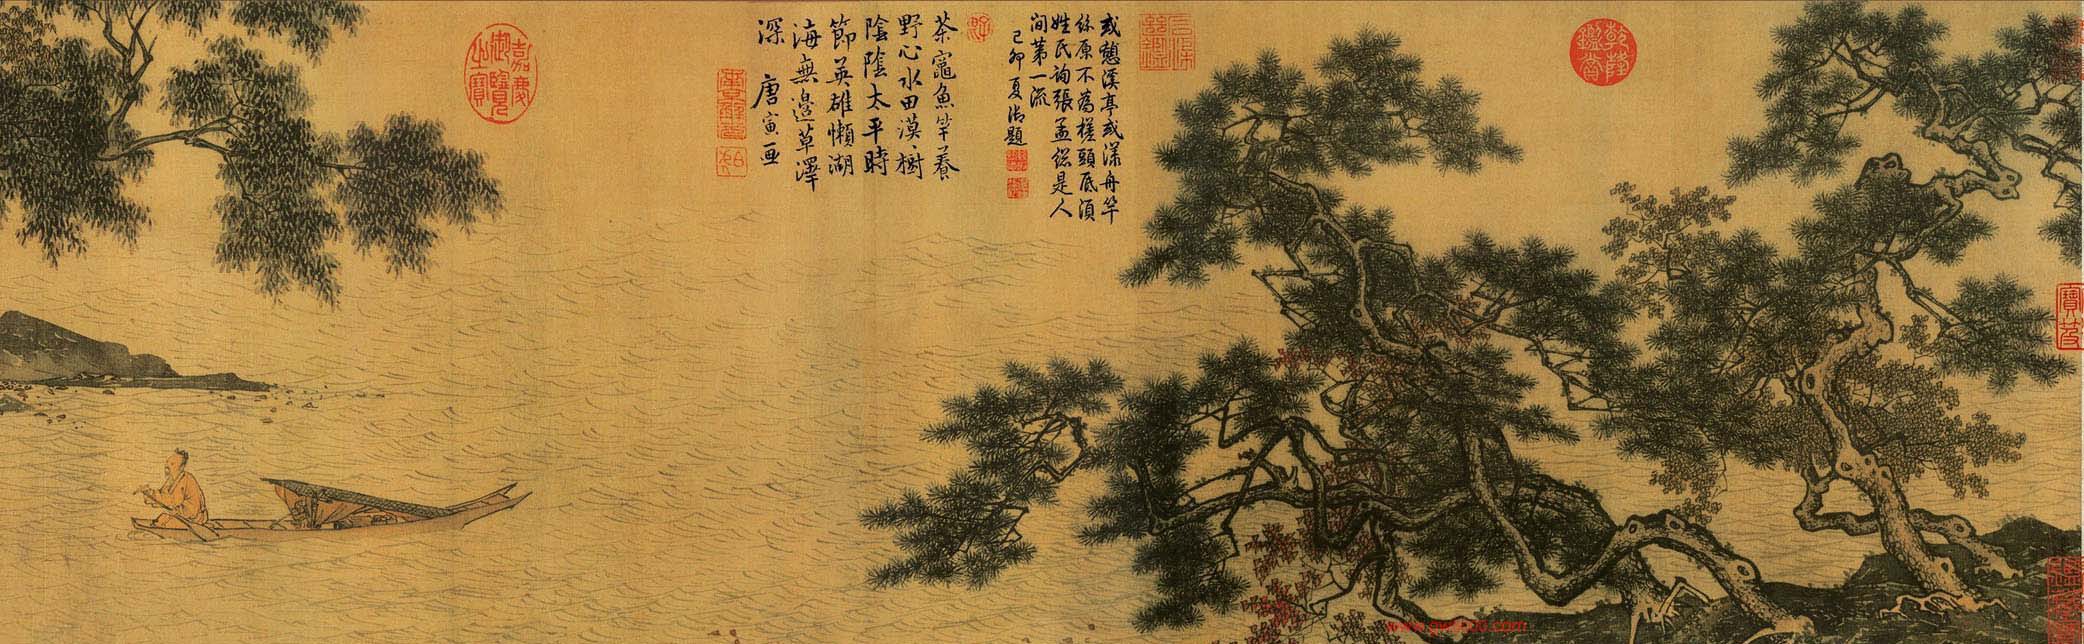 乾隆鑑賞
或憩溪亭或漾舟竿
絲原不為槎頭底須
姓氏詢張孟総是人
間第一流
己卯夏御題
茶竈魚竿養
野心水田漠〻樹
陰陰太平時
節英雄懶湖
海無邊草澤
深 唐寅画
嘉慶御覽之寶